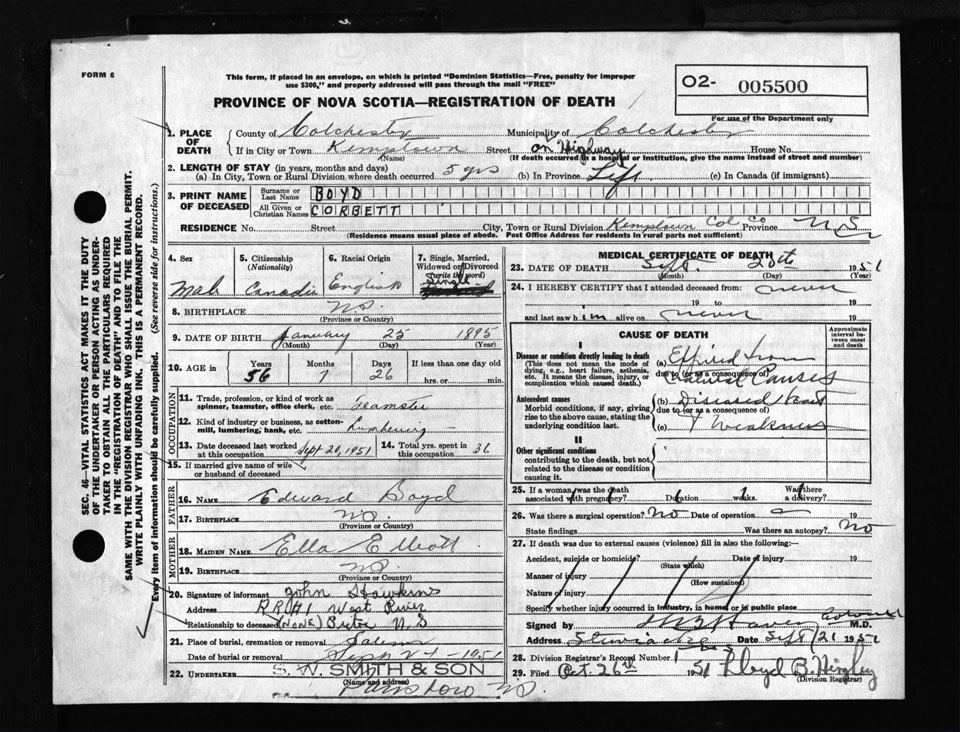 FORM 6
This form, if placed in an envelope, on which is printed "Dominion Statistics—Free, penalty for improper
use $300," and properly addressed will pass through the mail "FREE"
O2- 005500
For use of the Department only
PROVINCE OF NOVA SCOTIA—REGISTRATION OF DEATH
SEC. 46—VITAL STATISTICS ACT MAKES IT THE DUTY
OF THE UNDERTAKER OR PERSON ACTING AS UNDER-
TAKER TO OBTAIN ALL THE PARTICULARS REQUIRED
IN THE "REGISTRATION OF DEATH" AND TO FILE THE
SAME WITH THE DIVISION REGISTRAR WHO SHALL ISSUE THE BURIAL PERMIT.
WRITE PLAINLY WITH UNFADING INK. THIS IS A PERMANENT RECORD.
Every item of information should be carefully supplied. (See reverse side for instructions.)
1. PLACE OF DEATH
County of Colchester Municipality of Colchester
If in City or Town Kemptown Street on Highway House No.
(Name) (If death occurred in a hospital or Institution, give the name instead of street and number)
2. LENGTH OF STAY (in years, months and days)
(a) In City, Town or Rural Division where death occurred 5 yrs (b) In Province Life (c) In Canada (if immigrant)
3. PRINT NAME OF DECEASED
Surname or Last Name BOYD
All Given or Christian Names CORBETT
RESIDENCE No. Street City, Town or Rural Division Kemptown Col Co Province N.S
(Residence means usual place of abode. Post Office Address for residents in rural parts not sufficient)
4. Sex Male
5. Citizenship (Nationality)
6. Racial Origin English
7. Single, Married, Widowed or Divorced (write the word) Single
8. BIRTHPLACE N.S.
(Province or Country)
9. DATE OF BIRTH January 25 1895
(Month) (Day) (Year)
10. AGE in Years 56 Months 7 Days 26 If less than one day old
hrs. or min.
OCCUPATION
11. Trade, profession, or kind of work as
spinner, teamster, office clerk, etc. Teamster
12. Kind of industry or business, as cotton-
mill, lumbering, bank, etc. Lumbering
13. Date deceased last worked
at this occupation Sept 20, 1951
14. Total yrs. spent in
this occupation 36
15. If married give name of wife
or husband of deceased
FATHER
16. Name Edward Boyd
17. Birthplace N.S.
(Province or Country)
MOTHER
18. Maiden Name Ella Elliott
19. Birthplace N.S.
(Province or Country)
20. Signature of informant John Hawkins
Address R R #1 West River
Relationship to deceased (NONE) Pictou N.S
21. Place of burial, cremation or removal Salem
Date of burial or removal 1951
22. UNDERTAKER S. W. SMITH & SON
(Name and address)
MEDICAL CERTIFICATE OF DEATH
23. DATE OF DEATH Sept. 20th 1951
(Month) (Day) (Year)
24. I HEREBY CERTIFY that I attended deceased from: never
19 to 19
and last saw him alive on never 19
CAUSE OF DEATH
Approximate interval between onset and death
I
Disease or condition directly leading to death
(This does not mean the mode of
dying, e.g., heart failure, asthenia,
etc. It means the disease, injury, or
complication which caused death.)
(a) Expired from
due to (or as a consequence of)
Natural Causes
Antecedent causes
Morbid conditions, if any, giving
rise to the above cause, stating the
underlying condition last.
(b) Diseased heart
due to (or as a consequence of)
(c) & Weakness
II
Other significant conditions
contributing to the death, but not
related to the disease or condition
causing it.
25. If a woman was the death
associated with pregnancy? Duration weeks. Was there
a delivery?
26. Was there a surgical operation? No Date of operation 19
State findings Was there an autopsy? No
27. If death was due to external causes (violence) fill in also the following:—
Accident, suicide or homicide? Date of injury 19
(State which)
Manner of injury
(How sustained)
Nature of injury
Specify whether injury occurred in industry, in home, or in public place
Signed by M.D.
Address Stewiacke Date Sept 21 1951
28. Division Registrar's Record Number 1
29. Filed Oct. 26th 1951 Lloyd B.
(Division Registrar)